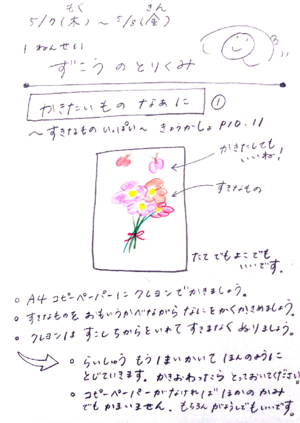 もく きん
5/7(木)~5/8(金)
1ねんせい
ずこうのとりくみ
かきたいもの なあに ①
~すきなもの いっぱい~ きょうかしょ P10.11
かきたしても
いいね!
すきなもの
たてでもよこでも
いいです。
○ A4 コピーペーパーに クレヨンでかきましょう。
○ すきなものを おもいうかべながら なにをかくかきめましょう。
○ クレヨンは すこしちからをいれて すきまなく ぬりましょう。
○ らいしゅう もう1まいかいて ほんのように
とじていきます。かきおわったら とっておいてください。
○ コピーペーパーがなければ ほかのかみ
でもかまいません。もちろん がようしでもいいです。